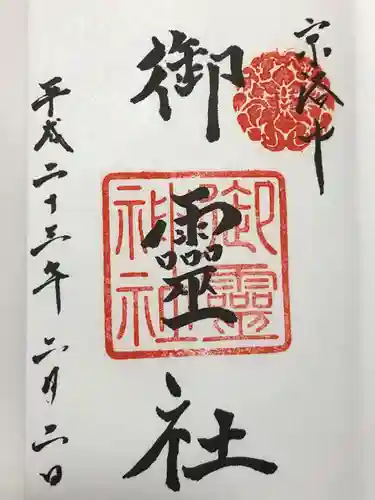 京洛十
御靈社
御靈
神社
平成二十三年六月二日